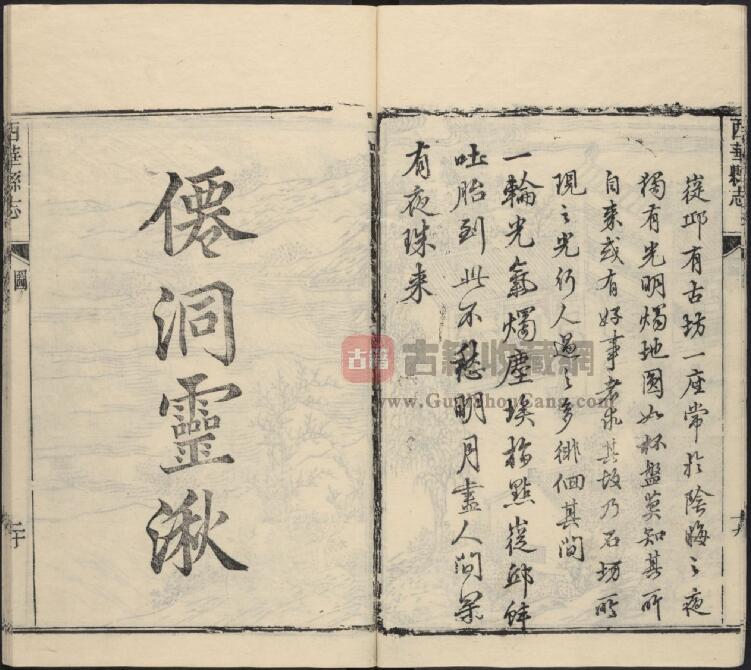 西華縣志
邱有古坊一座常於陰晦之夜
獨有光明燭地圓如杯盤莫知其所
自来或有好事者求其故乃石坊所
現之光行人過之多徘徊其間
一輪光氣燭塵埃指點邱蚌
吐胎到此不愁明月盡人間果
有夜珠来
僊洞靈湫
西華縣志
圖
二十
古籍
古籍收藏網
www.GuJiShouCang.com